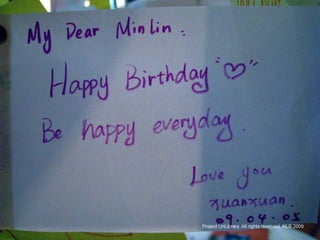 My Dear Minlin :
Happy Birthday "♡"
Be happy everyday.
Love you
xuanxuan.
09.04.05
Project UnLibrary. All rights reserved. NLB 2009